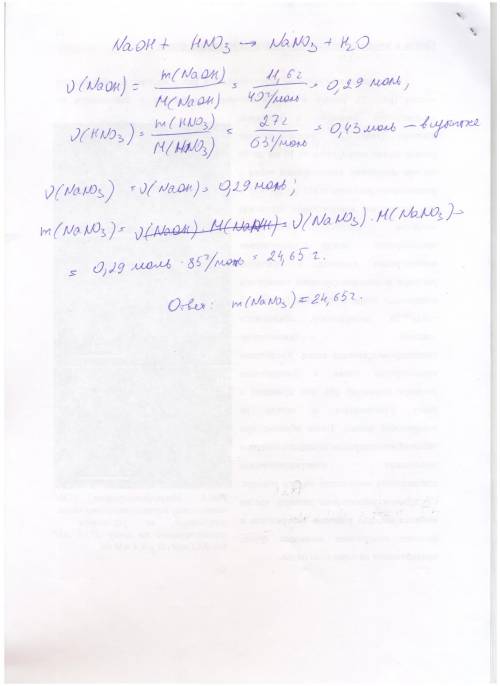 NaOH + HNO3 → NaNO3 + H2O
ν(NaOH) = m(NaOH)/M(NaOH) = 11,6 г/40 г/моль = 0,29 моль,
ν(HNO3) = m(HNO3)/M(HNO3) = 27 г/63 г/моль = 0,43 моль – в избытке
ν(NaNO3) = ν(NaOH) = 0,29 моль;
m(NaNO3) = ν(NaOH) · M(NaOH) = ν(NaNO3) · M(NaNO3) =
= 0,29 моль · 85 г/моль = 24,65 г.
Ответ: m(NaNO3) = 24,65 г.